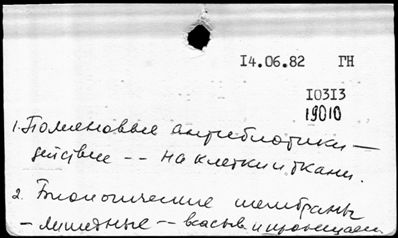 14.06.82 ГН
10313
19010
1. Полиеновые антибиотики —
действие -- на клетки и ткани.
2. Биологические мембраны
- липидные --